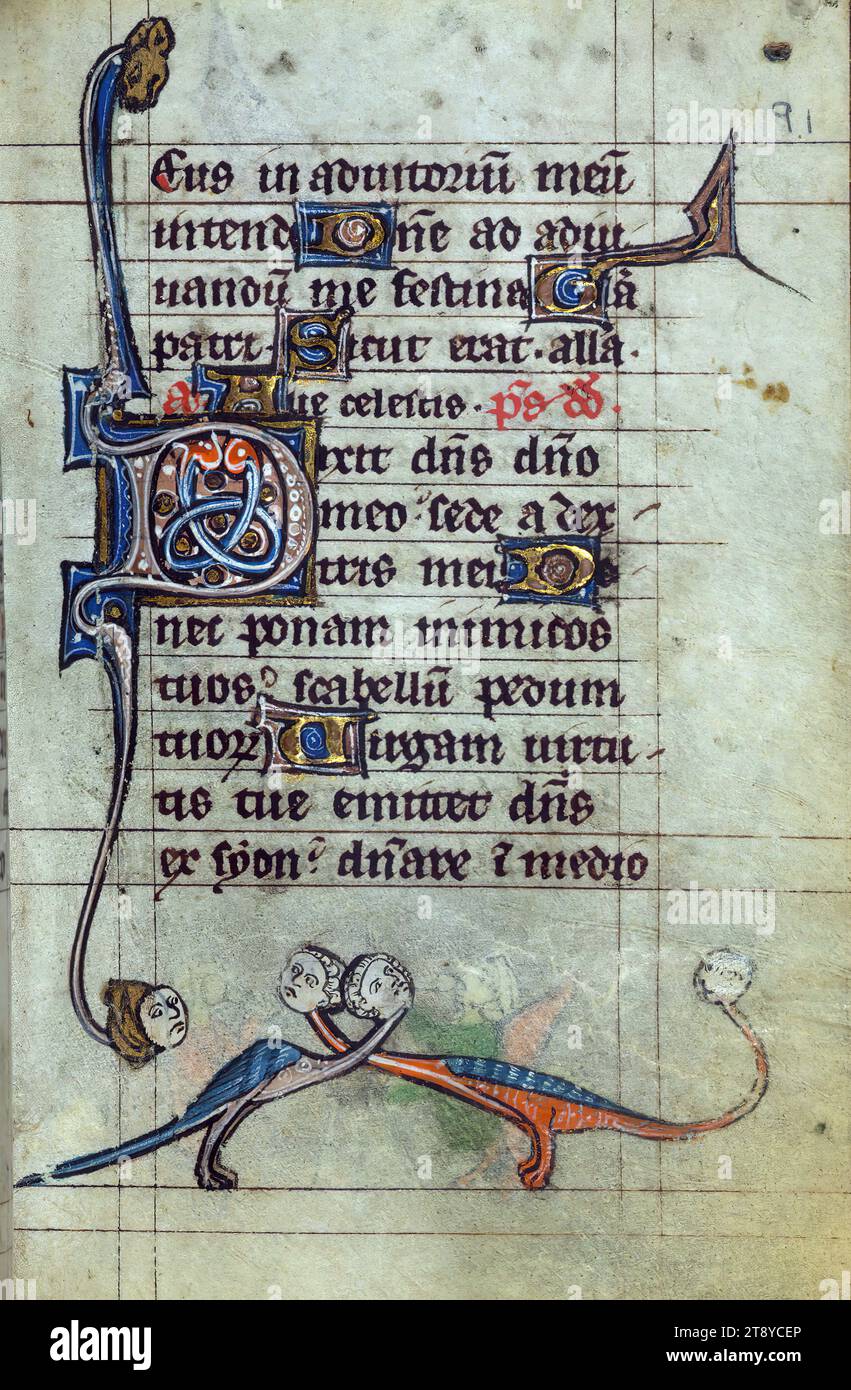 P.1
Eus in adiutoriū meū
intend Dn̄e ad adiu
uandū me festina Gl̄a
patri. Sicut erat. alla.
a Aue celestis. p̄s dd̄.
Dixit dn̄s dn̄o
meo: sede a dex
tris meis Do
nec ponam inimicos
tuos: scabellū pedum
tuoꝝ Uirgam uirtu
tis tue emittet dn̄s
ex syon: dn̄are ī medio
alamy
Image ID: 2T8YCEP
www.alamy.com